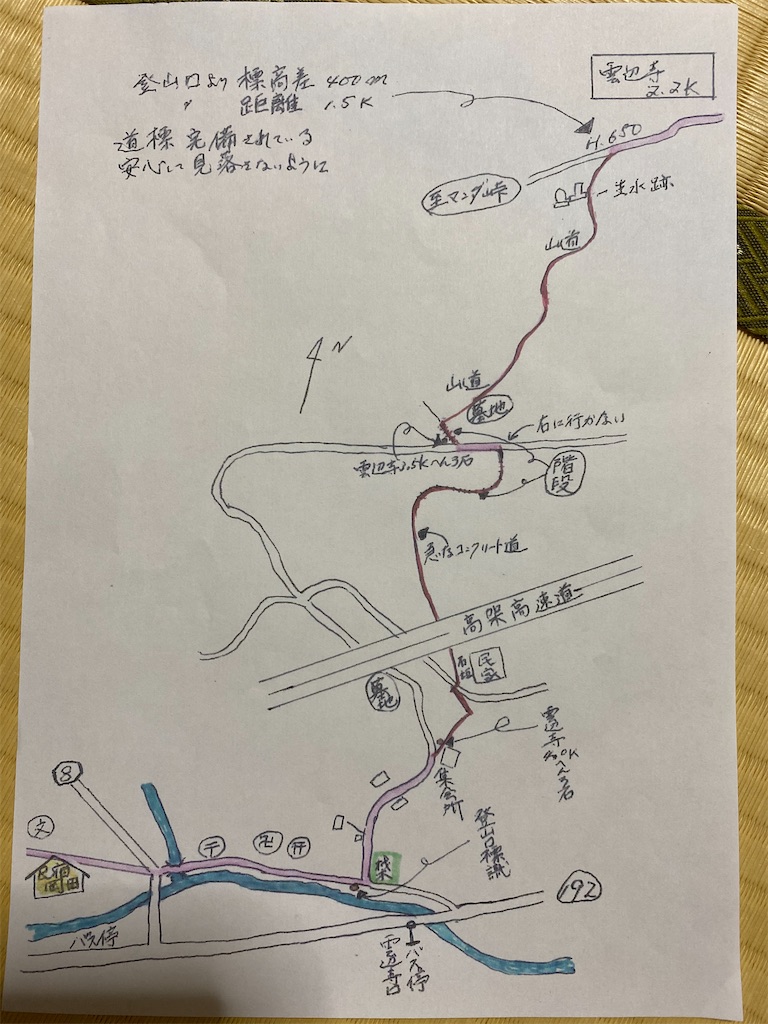 登山口より 標高差 400m
〃 距離 1.5K
道標完備されている
安心して見落さないように
雲辺寺
2.2K
H.650
至マンダ峠
生水跡
山道
N
山道
墓地
右に行かない
雲辺寺2.5Kへんろ石
階段
急なコンクリート道
高架高速道
石垣
民家
墓地
雲辺寺4.0Kへんろ石
集会所
8
文
〒
卍
开
登山口標識
民宿
岡田
192
バス停
バス停
雲辺寺口